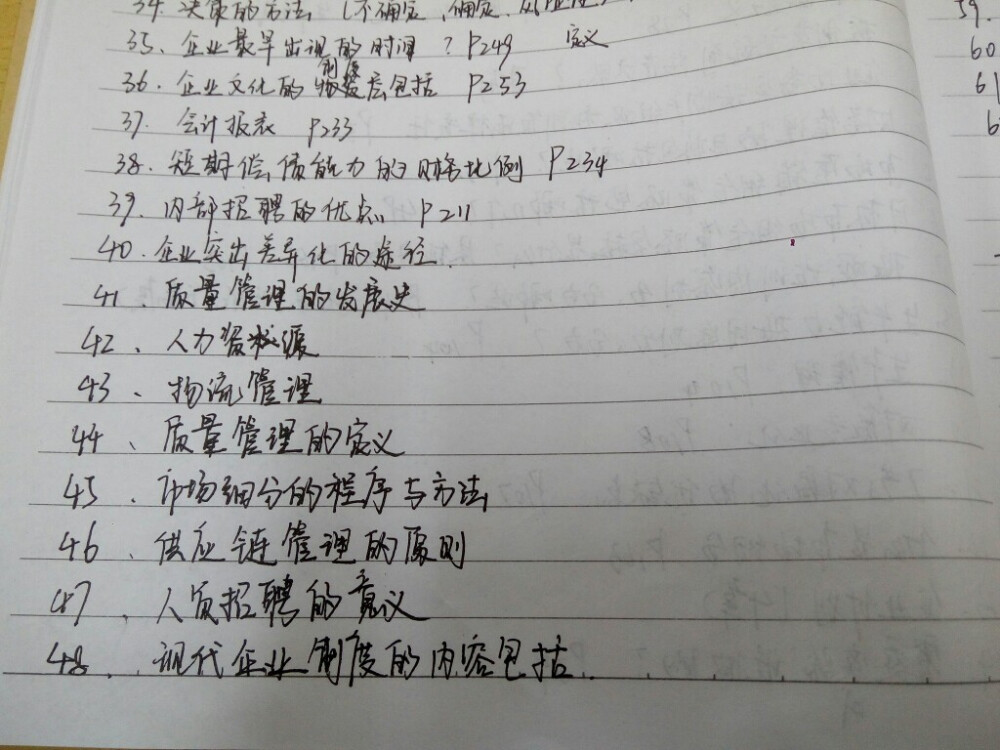 34. 决策的方法 (不确定,确定,风险性)
35. 企业最早出现的时间 ? P249 定义
36. 企业文化的制度层包括 P253
37. 会计报表 P233
38. 短期偿债能力的财务比例 P234
39. 内部招聘的优点 P211
40. 企业突出差异化的途径.
41. 质量管理的发展史
42、人力资源
43、物流管理
44、质量管理的定义
45、市场细分的程序与方法
46、供应链管理的原则
47、人员招聘的意义
48、现代企业制度的内容包括.
59.
60
61